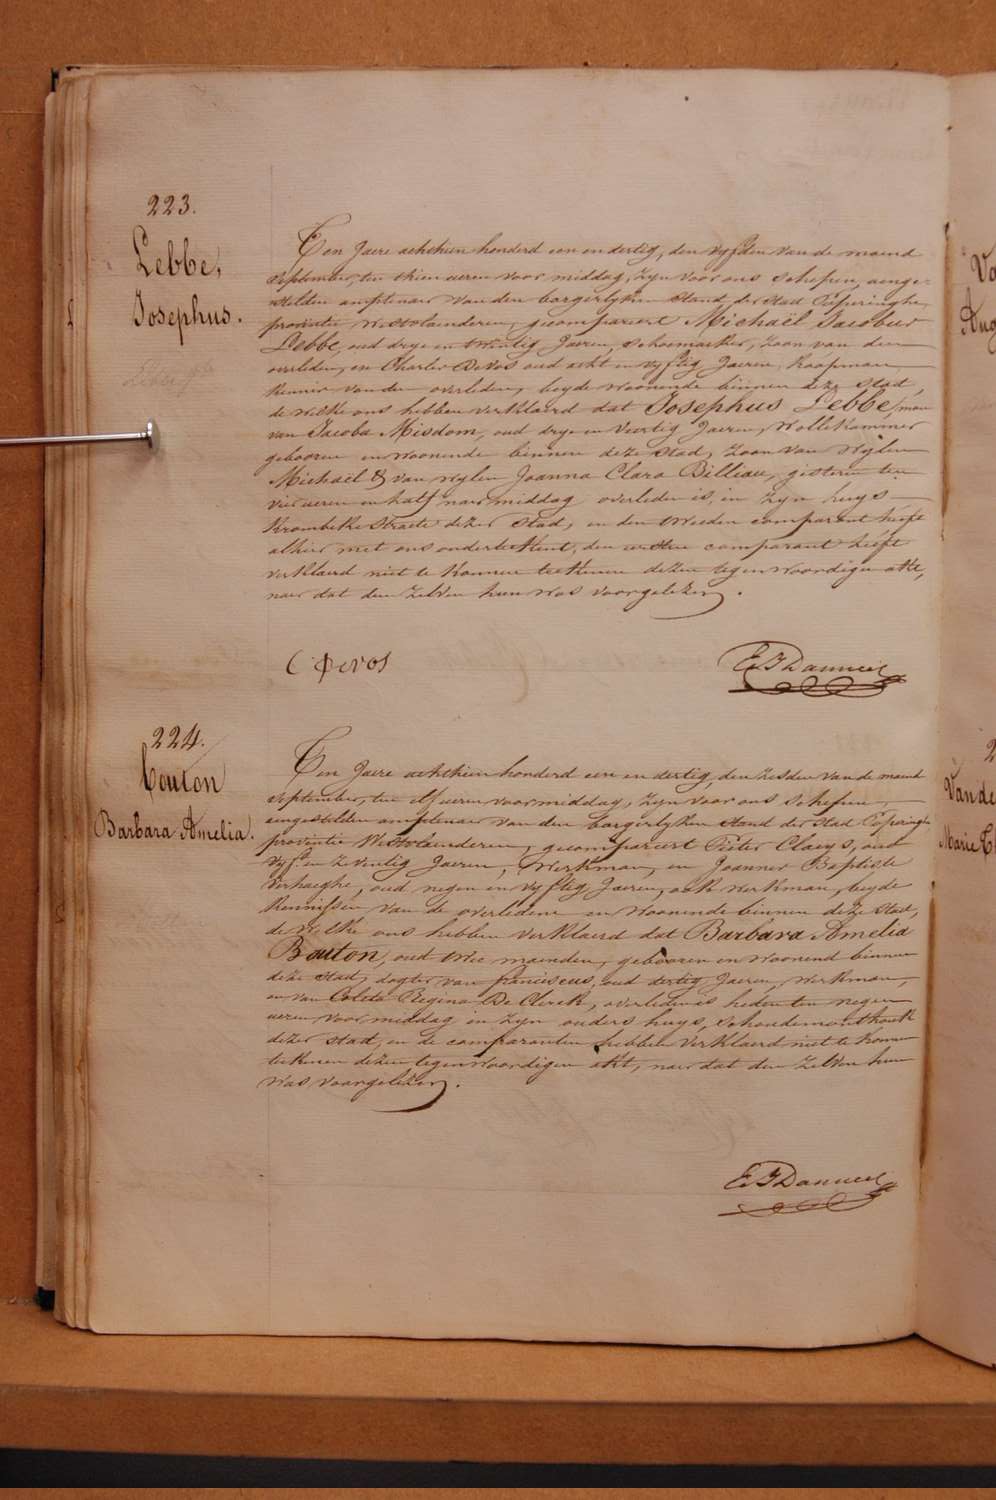 223.
Lebbe,
Josephus.
Ten Jaere achthien honderd een en dertig, den vyfden van de maend
September, ten thien ueren voor middag, zyn voor ons schepen, aenge-
stelden amptenaer van den borgerlyken stand der stad Poperinghe,
provintie Westvlaenderen, gecompareert Michaël Jacobus
Lebbe, oud drye en twintig Jaeren, schoemaeker, zoon van den
overleden, en Charles De Vos oud acht en vyftig Jaeren, koopman,
kennis van den overleden, beyde woonende binnen deze stad,
de welke ons hebben verklaerd dat Josephus Lebbe, man
van Jacoba Misdom, oud drye en veertig Jaeren, Wollekammer
gebooren en woonende binnen deze stad, zoon van wylen
Michaël & van wylen Joanna Clara Billiau, gisteren ten
vier ueren en half naermiddag overleden is, in zyn huys
Krombeke straete dezer stad, en den tweeden comparant heeft
alhier met ons onderteekent, den eersten comparant heeft
verklaerd niet te konnen teekenen dezen tegenwoordigen akt,
naer dat den zelven hun was voorgelezen.
C Devos
224.
Bouton
Barbara Amelia.
Ten Jaere achthien honderd een en dertig, den zesden van de maend
September, ten elf ueren voormiddag, zyn voor ons schepen,
aengestelden amptenaer van den borgerlyken stand der stad Poperinghe
provintie Westvlaenderen, gecompareert Pieter Claeys, oud
vyf en zeventig Jaeren, Werkman, en Joannes Baptiste
Verhaeghe, oud negen en vyftig Jaeren, ook werkman, beyde
kennissen van de overledene en woonende binnen deze stad,
de welke ons hebben verklaerd dat Barbara Amelia
Bouton, oud twee maenden, gebooren en woonend binnen
deze stad, dogter van franciscus, oud dertig Jaeren, werkman,
en van Coleta Regina De Clerck, overleden is heden ten negen
ueren voor middag in zyn ouders huys, Schoudemonthoek
dezer stad, en de comparanten hebben verklaerd niet te konnen
teekenen dezen tegenwoordigen akt, naer dat den zelven hun
was voorgelezen.